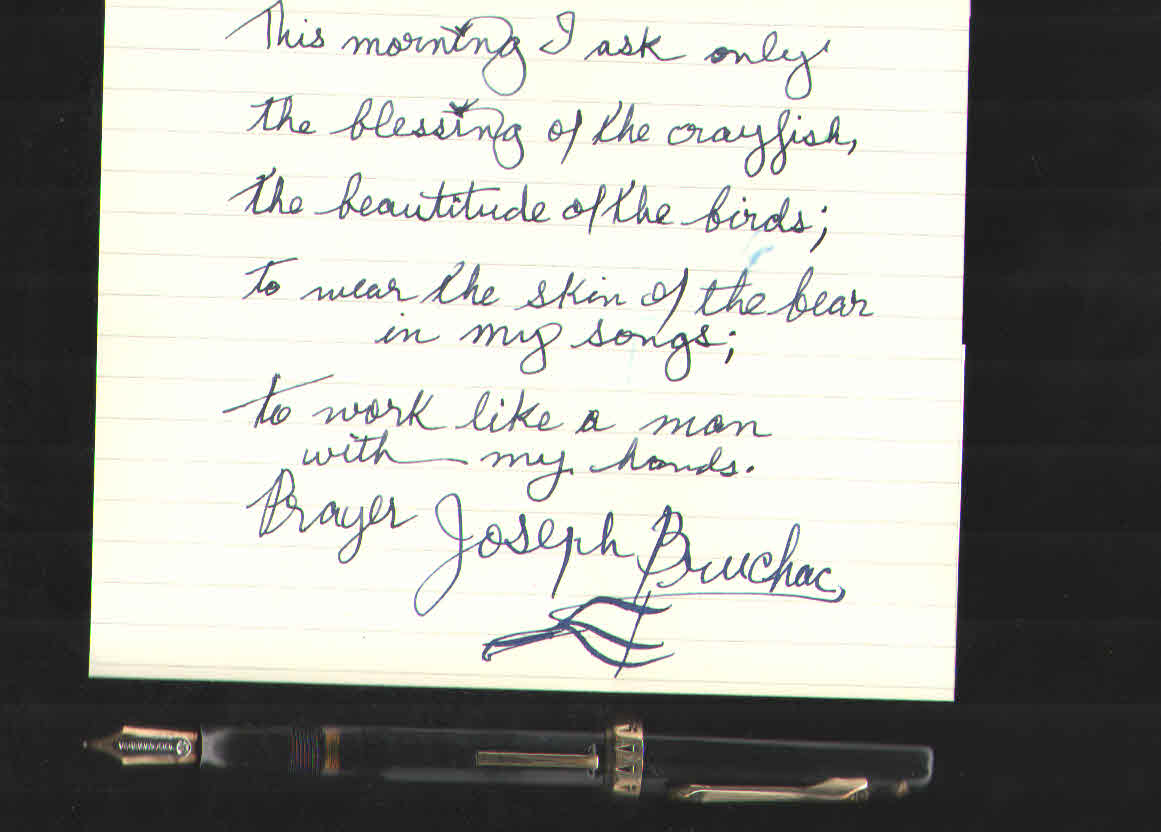 This morning I ask only
the blessing of the crayfish,
the beautitude of the birds;
to wear the skin of the bear
in my songs;
to work like a man
with my hands.
Prayer Joseph Bruchac